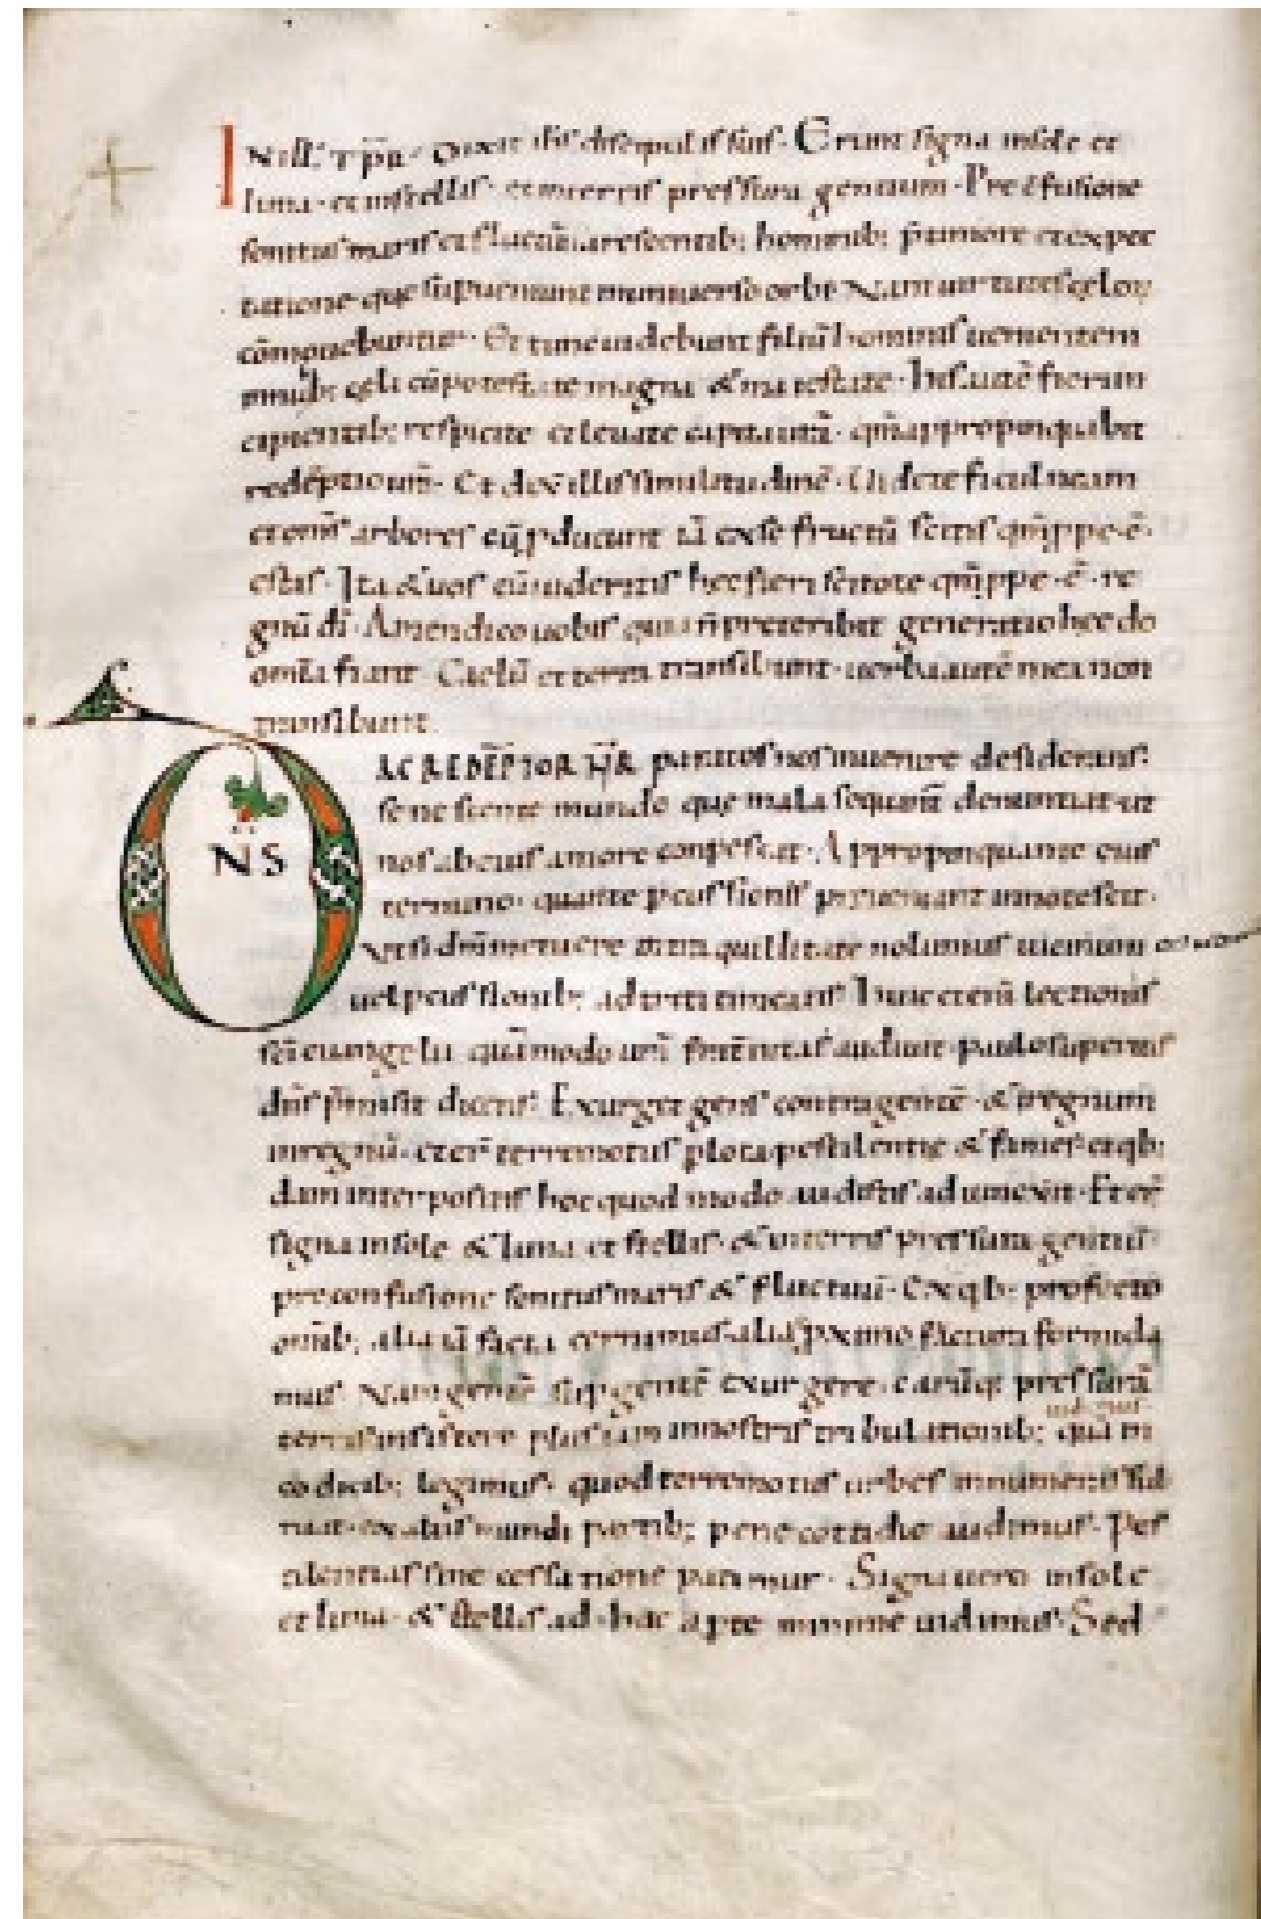 IN ill. T pr. Dixit ihs discipulis suis. Erunt signa in sole et
luna. et in stellis. et in terris pressura gentium. Pre c̄fusione
sonitus maris et fluctuū. arescentib; hominib; p̄ timore et expec
tatione que sup̄uenient in uniuerso orbe. Nam uirtutes celoꝝ
cōmouebuntur. Et tunc uidebunt filiū hominis uenientem
in nubib; celi cū potestate magna & maiestate. His autē fieri in
cipientib; respicite et leuate capita ur̄a. qm̄ appropinquabit
redēptio ur̄a. Et dix̄ illis similitudinē. Uidete ficulneam
et om̄s arbores cū ꝓducunt iā ex se fructū scitis qm̄ ꝓpe .ē.
estas. Ita & uos cū uideritis hec fieri scitote qm̄ ꝓpe .ē. re
gnū dī. Amen dico uobis quia n̄ preteribit generatio hec do
om̄ia fiant. Caelū et terra transibunt. uerba autē mea non
transibunt.
DN̄S AC REDĒPTOR N̄R paratos nos inuenire desiderans.
senescente mundo que mala sequant̄ denuntiat. ut
nos ab eius amore conpescat. Appropinquante eius
termino. quante ꝑcussiones ꝑueniant innotescit.
Ut si dm̄ metuere in tranquillitate nolumus uicinum
uel ꝑcussionib; adtriti timeamus. Huic etenī lectionis
sc̄i euangelii quā modo ur̄a fraternitas audiuit. paulo superius
dn̄s p̄misit dicens. Exurget gens contra gentē. & regnum
in regnū. et er̄ terremotus ꝑ loca. pestilentie & fames. et qb;
dam interpositis hoc quod modo audistis adiunxit. Ert̄
signa in sole & luna et stellis. & in terris pressura gentiū.
pre confusione sonitus maris & fluctuū. Ex qb; profecto
omīb; alia iā facta cernimus. alia ꝓximo futura formida
mus. Nam gentē sup gentē exurgere. earūq; pressurā
terris insistere plus iam in nostris tribulationib; quā in
codicib; legimus. quod terremotus urbes innumeras sub
ruat. ex aliis mundi partib; pene cottidie audimus. Pes
tilentias sine cessatione patimur. Signa uero in sole
et luna. & stellis. adhuc aperte minime uidimus. Sed